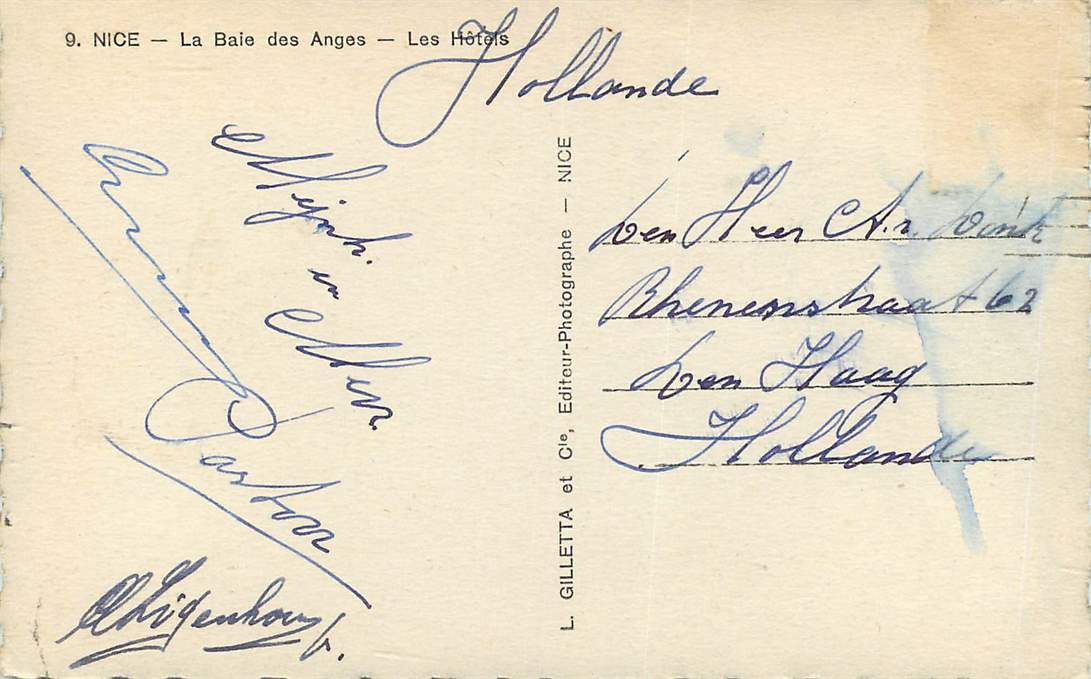 9. NICE — La Baie des Anges — Les Hôtels
Hollande
Mijnh. en Mevr.
Pastoor
L. GILLETTA et Cie, Editeur-Photographe — NICE
Den Heer A. v. Dink
Rhenensstraat 62
Den Haag
Hollande